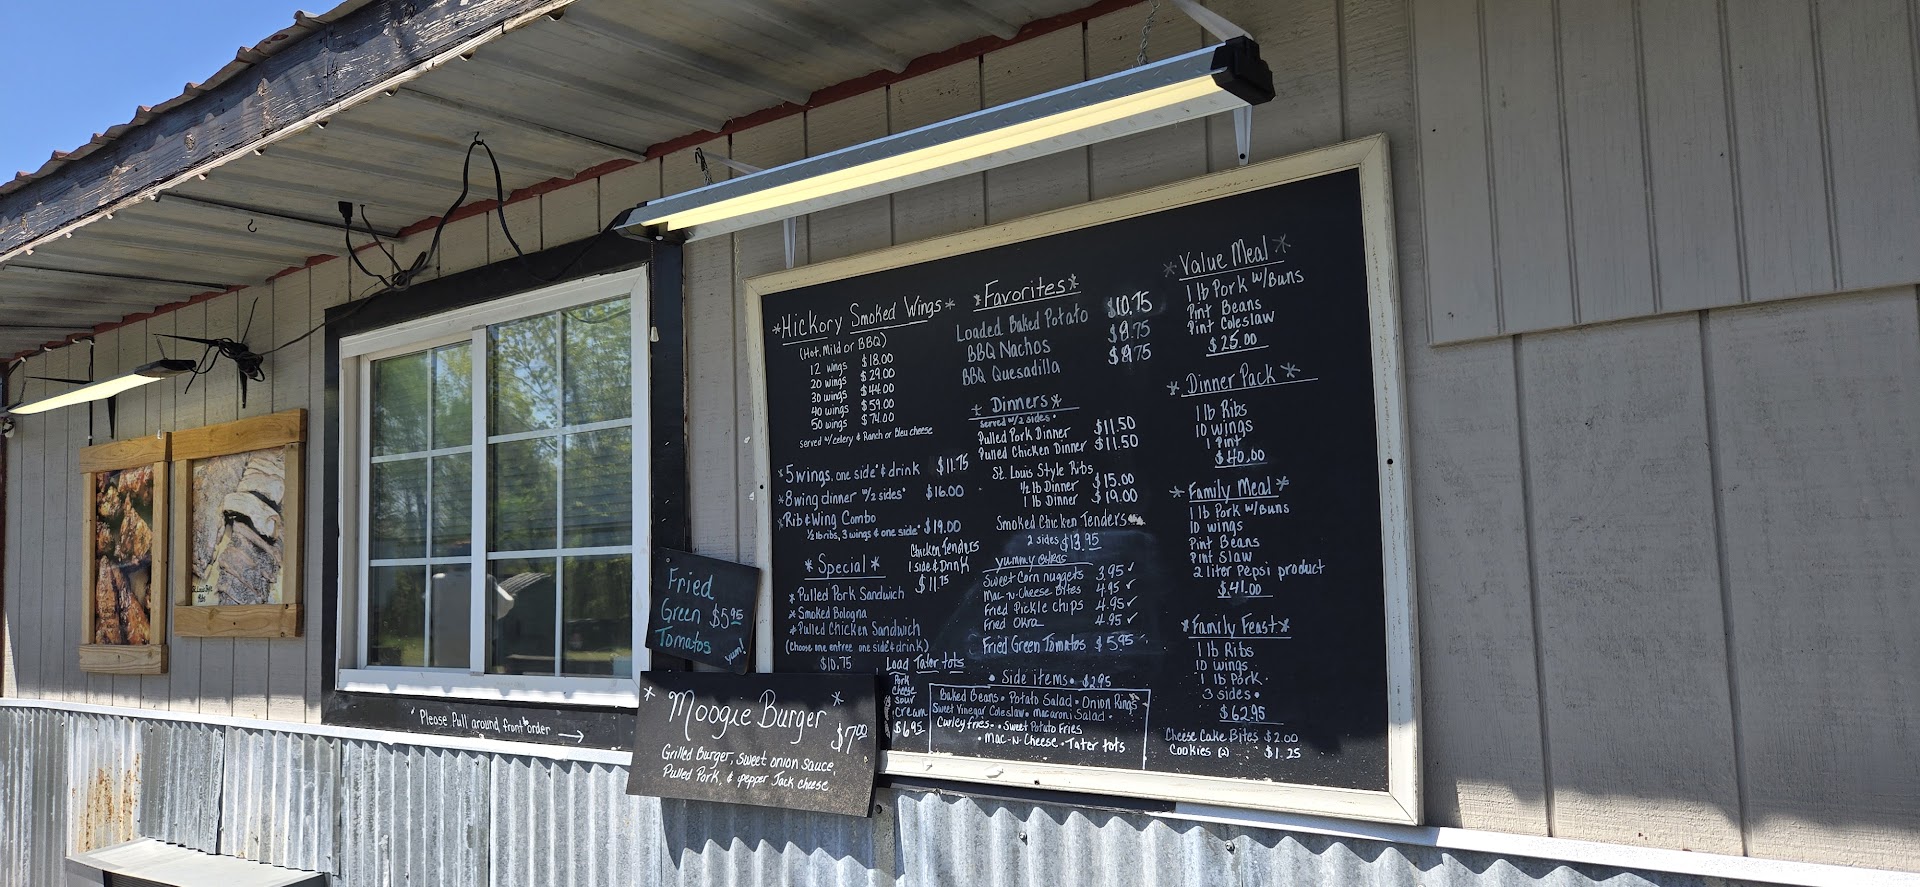 *Hickory Smoked Wings*
(Hot, Mild or BBQ)
12 wings $18.00
20 wings $29.00
30 wings $44.00
40 wings $59.00
50 wings $74.00
served w/celery & Ranch or Bleu cheese
*5 wings, one side & drink $11.75
*8 wing dinner w/2 sides $16.00
*Rib & Wing Combo
½ lb ribs, 3 wings & one side $19.00
*Special*
*Pulled Pork Sandwich
*Smoked Bologna
*Pulled Chicken Sandwich
(Choose one entree one side & drink)
$10.75
Chicken Tenders
1 side & Drink
$11.75
Load Tater tots
Pork
Cheese
Sour
Cream
$6.95
*Favorites*
Loaded Baked Potato $10.75
BBQ Nachos $9.75
BBQ Quesadilla $9.75
*Dinners*
served w/2 sides
Pulled Pork Dinner $11.50
Pulled Chicken Dinner $11.50
St. Louis Style Ribs
½ lb Dinner $15.00
1 lb Dinner $19.00
Smoked Chicken Tenders
2 sides $13.95
yummy extras
Sweet Corn nuggets 3.95 ✓
Mac-N-Cheese Bites 4.95 ✓
Fried Pickle chips 4.95 ✓
Fried Okra 4.95 ✓
Fried Green Tomatos $5.95
• Side items • $2.95
Baked Beans • Potato Salad • Onion Rings
Sweet Vinegar Coleslaw • macaroni Salad •
Curley fries • Sweet Potato Fries
• Mac-N-Cheese • Tater tots
*Value Meal*
1 lb Pork w/Buns
Pint Beans
Pint Coleslaw
$25.00
*Dinner Pack*
1 lb Ribs
10 wings
1 Pint
$40.00
*Family Meal*
1 lb Pork w/Buns
10 wings
Pint Beans
Pint Slaw
2 liter Pepsi product
$41.00
*Family Feast*
1 lb Ribs
10 wings
1 lb Pork
3 sides
$62.95
Cheese Cake Bites $2.00
Cookies (2) $1.25
Fried
Green $5.95
Tomatos
yum!
*Moogie Burger*
$7.00
Grilled Burger, sweet onion sauce,
Pulled Pork, & pepper Jack cheese
Please Pull around front to order →